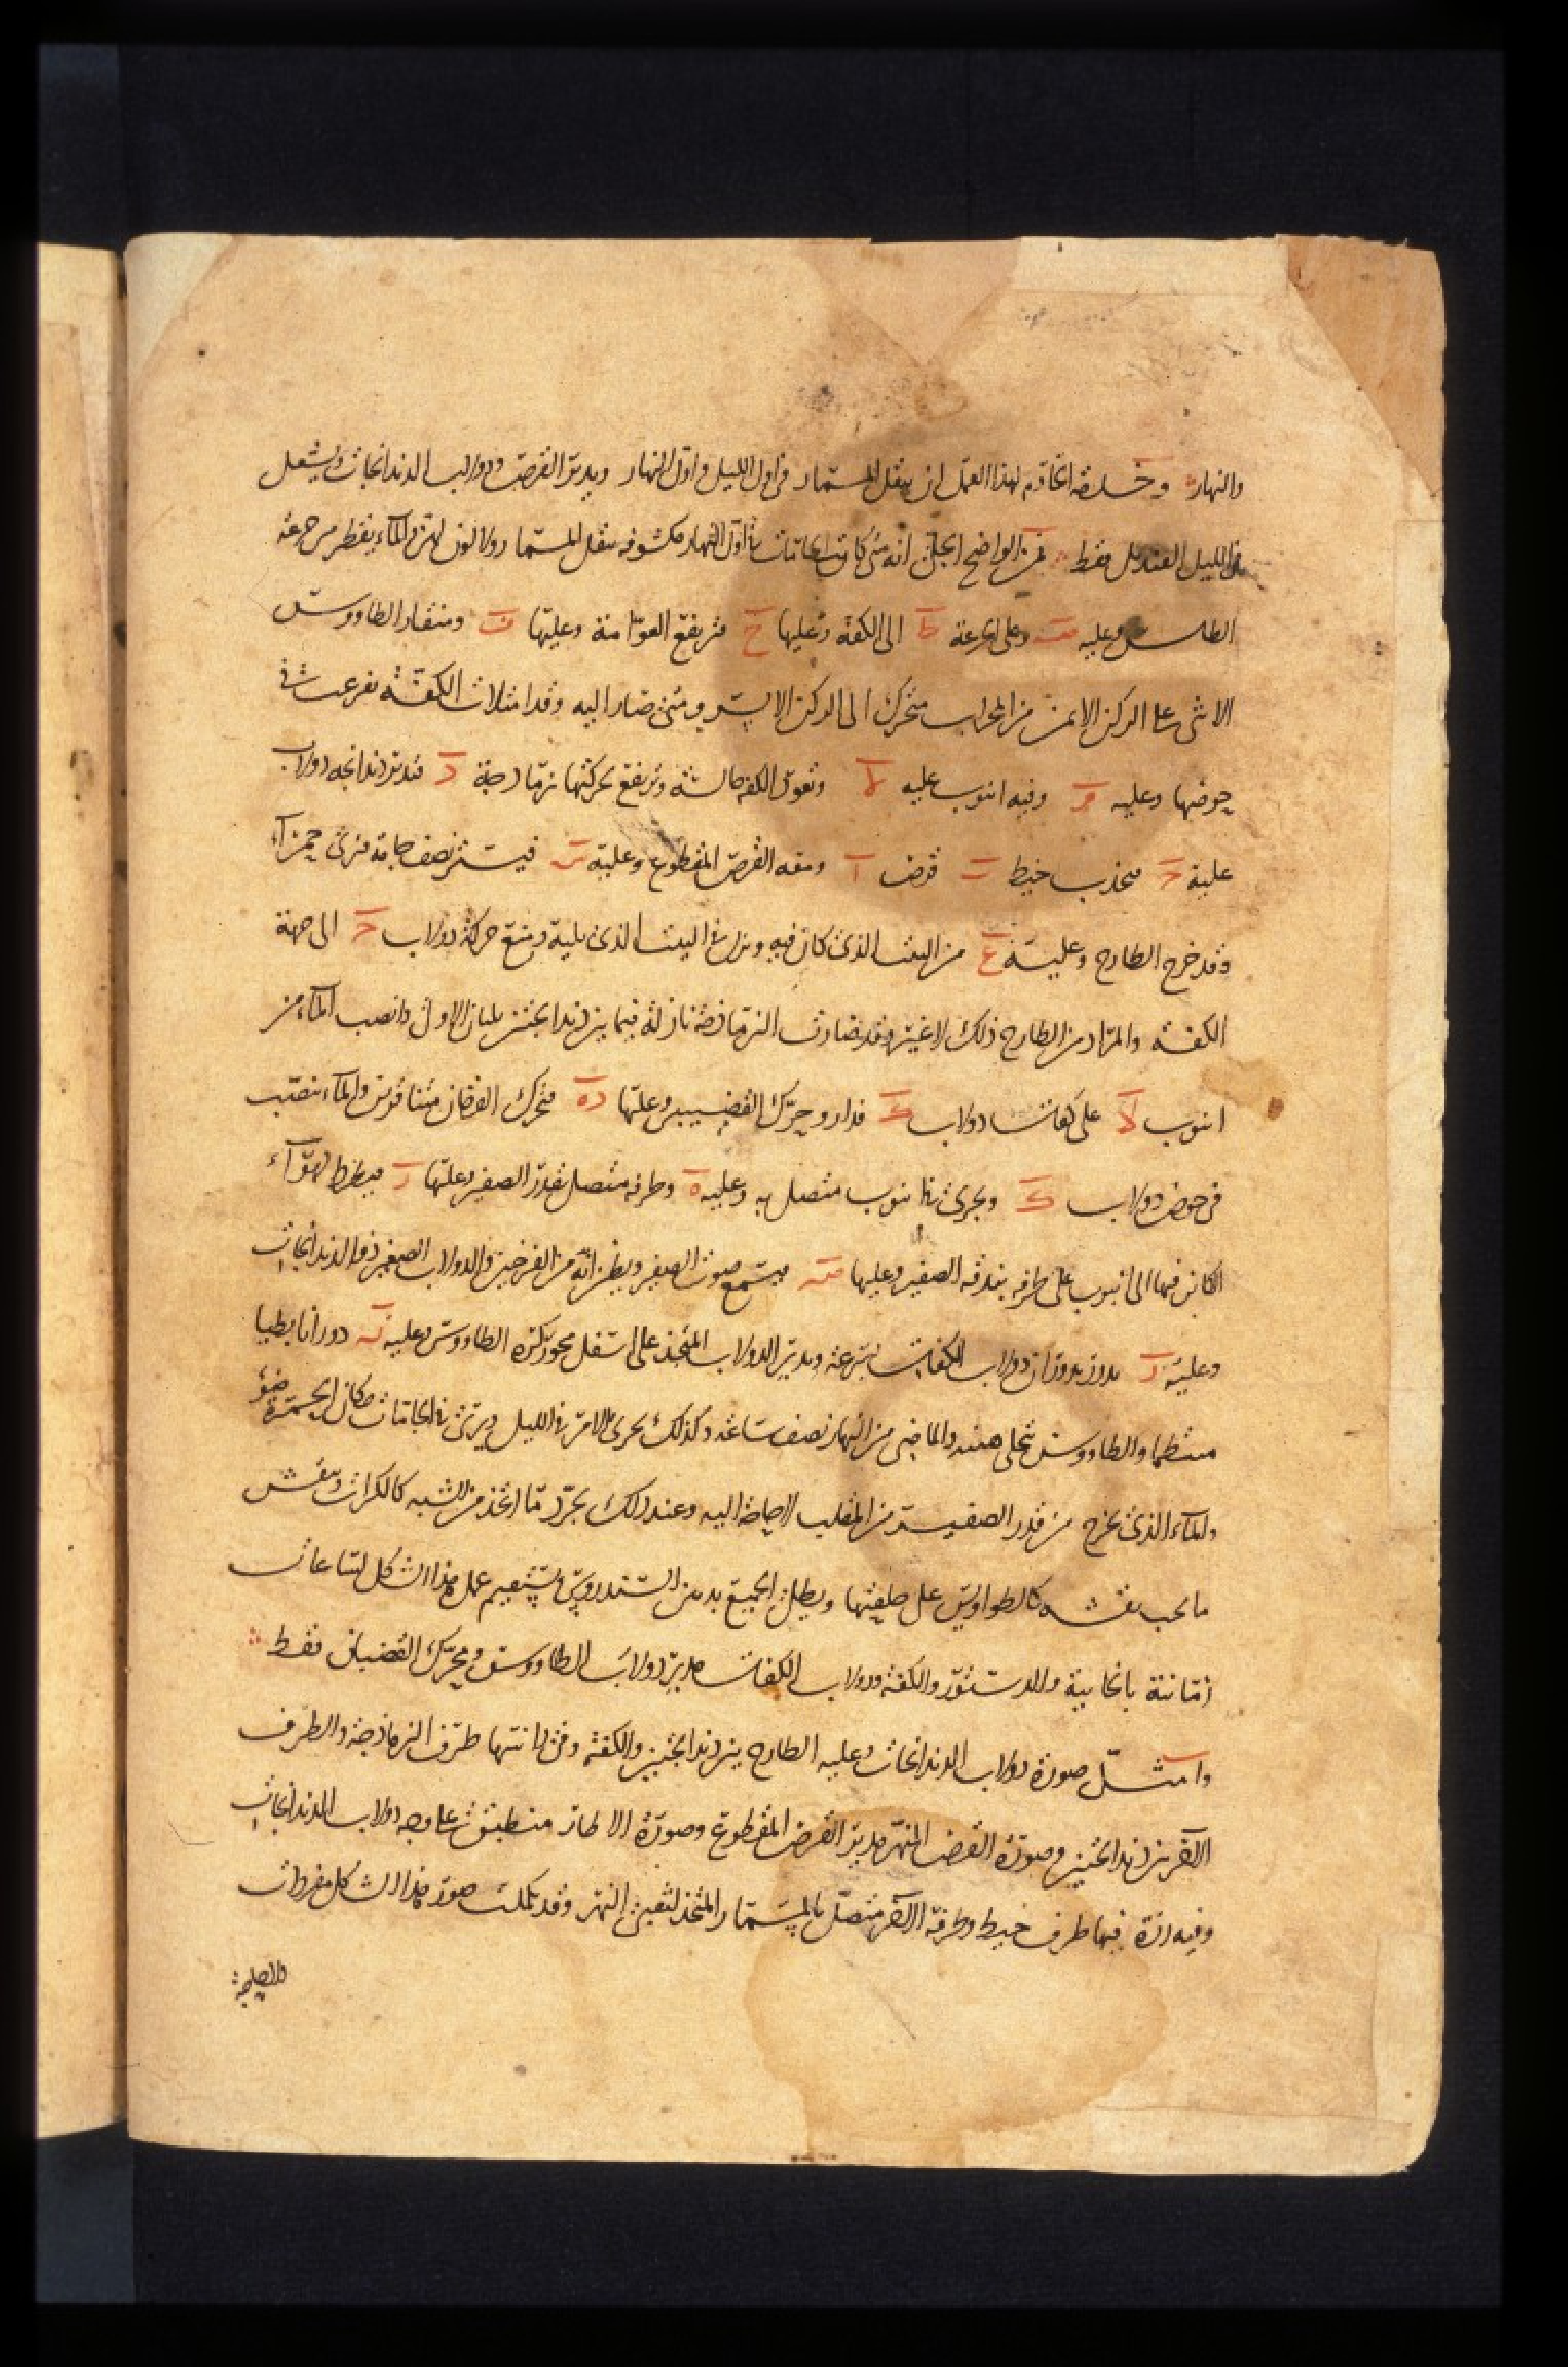 والنهار وخدمة الخادم لهذا العمل ان ينقل المسمار في اول الليل واول النهار ويدير القرص ودواليب الدندانجات ويشعل
في الليل القنديل فقط فمن الواضح الجلي انه متى كانت الجامات في اول النهار مكشوفة بنقل المسمار ودلالون لترى والماء يقطر من جزعة
الطاس وعليه وعلى الجزعة ط الى الكفة وعليها ح فترتفع العوامة وعليها ف ومنقار الطاووس
الانثى على الركن الايمن من المحراب متحرك الى الركن الايسر ومتى صار اليه وقد امتلات الكفة تفرغت في
حوضها وعليه م وفيه انبوب عليه لا وتعود الكفة مسرعة وترتفع بحركتها نرماذجة د فتدير دندانجه دولاب
عليه ح فيجذب خيط ب قرص ا ومعه القرص المقطوع وعليه س فيستتر نصف جامة فترى حمراء
وقد خرج الطارح وعليه ع من البيت الذي كان فيه ونزل في البيت الذي يليه ومنع حركة دولاب ح الى جهة
الكفة والمراد من الطارح ذلك لا غير وقد صارت النرماذجة نازلة فيما بين دندانجتين يليان الاولى وانصب الماء من
انبوب لا على كفات دولاب ك فدار وحرك القضيبين وعليهما ده فتحرك الفرخان متناقرين والماء ينصب
في حوض دولاب ك ويجري في انبوب متصل به وعليه ه وطرفه متصل بقدر الصفير وعليها ر فيطرد الهواء
الكائن فيها الى انبوب على طرفه بندقة الصفير وعليها صه فيسمع صوت الصفير ويظن انه من الفرخين والدولاب الصغير ذو الدندانجات
وعليه ز يدور بدوران دولاب الكفات بسرعة ويدير الدولاب المتخذ على اسفل محور كرة الطاووس وعليه ن دورانا بطيا
منتظما والطاووس يتجلى هنيهة والماضي من النهار نصف ساعة وكذلك يجري الامر في الليل ويرى في الجامات مكان الحمرة ضوء
والماء الذي يخرج من قدر الصفير من المقلب لا حاجة اليه وعند ذلك يجرد ما اتخذ من الشبه كالكرات وينقش
ما يجب نقشه كالطواويس على خلقتها ويطلى الجميع بدهن السندروس ويستقيم عمل هذا الشكل لساعات
زمانية بالخابية والدستور والكفة ودولاب الكفات مدير دولاب الطاووس ومحرك القضبان فقط
وامثل صورة دولاب الدندانجات وعليه الطارح بين دندانجتين والكفة وفي انتهائها طرف النرماذجة والطرف
الآخر بين دندانجتين وصورة القرص المنهر مدير القرص المقطوع وصورة الاطار منطبق على وجه دولاب الدندانجات
وفيه رزة فيها طرف خيط وطرفه الآخر متصل بالمسمار المتخذ لتعيين النهر وقد كملت صورة هذا الشكل مفردات